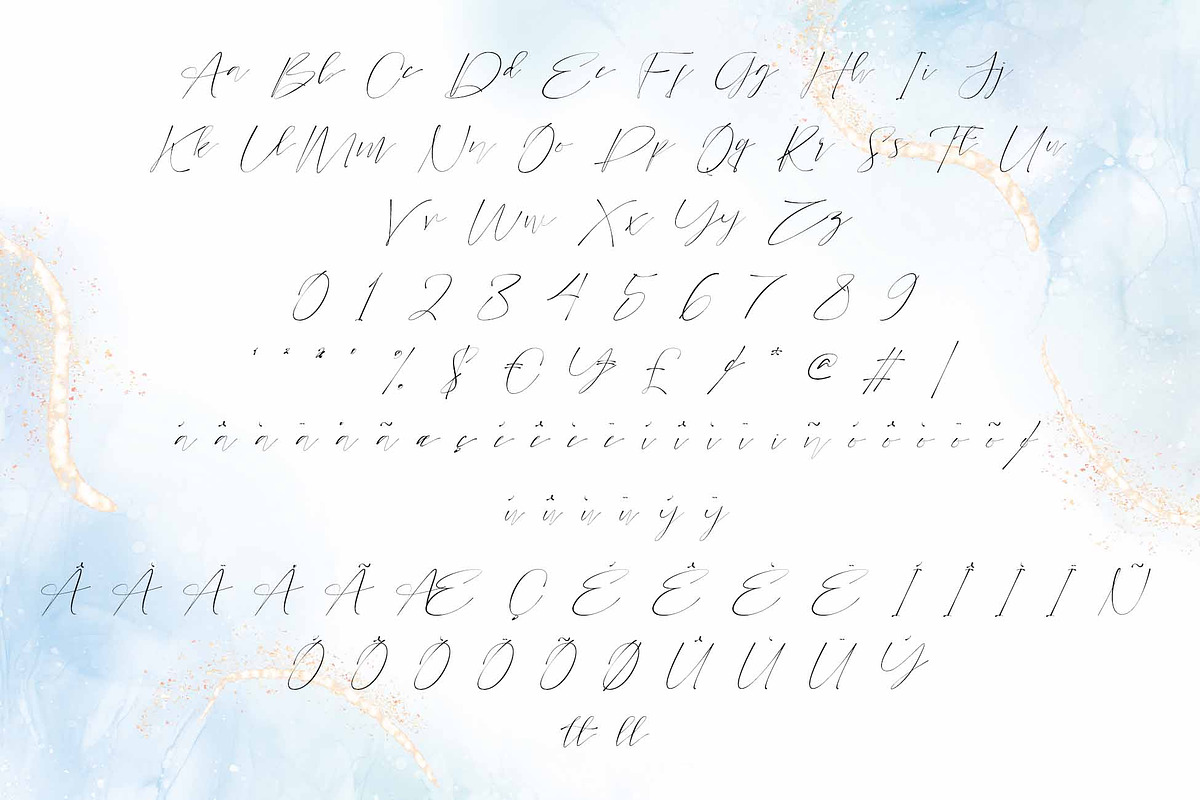 Aa Bb Cc Dd Ee Ff Gg Hh Ii Jj
Kk Ll Mm Nn Oo Pp Qq Rr Ss Tt Uu
Vv Ww Xx Yy Zz
0 1 2 3 4 5 6 7 8 9
% $ € ¥ £ * @ # |
á â à ä å ã æ ç é ê è ë í î ì ï ñ ó ô ò ö õ
ú û ù ü ý ÿ
Â À Ä Å Ã Æ Ç É Ê È Ë Í Î Ì Ï Ñ
Ó Ô Ò Ö Õ Ø Û Ù Ü Ý
tt ll